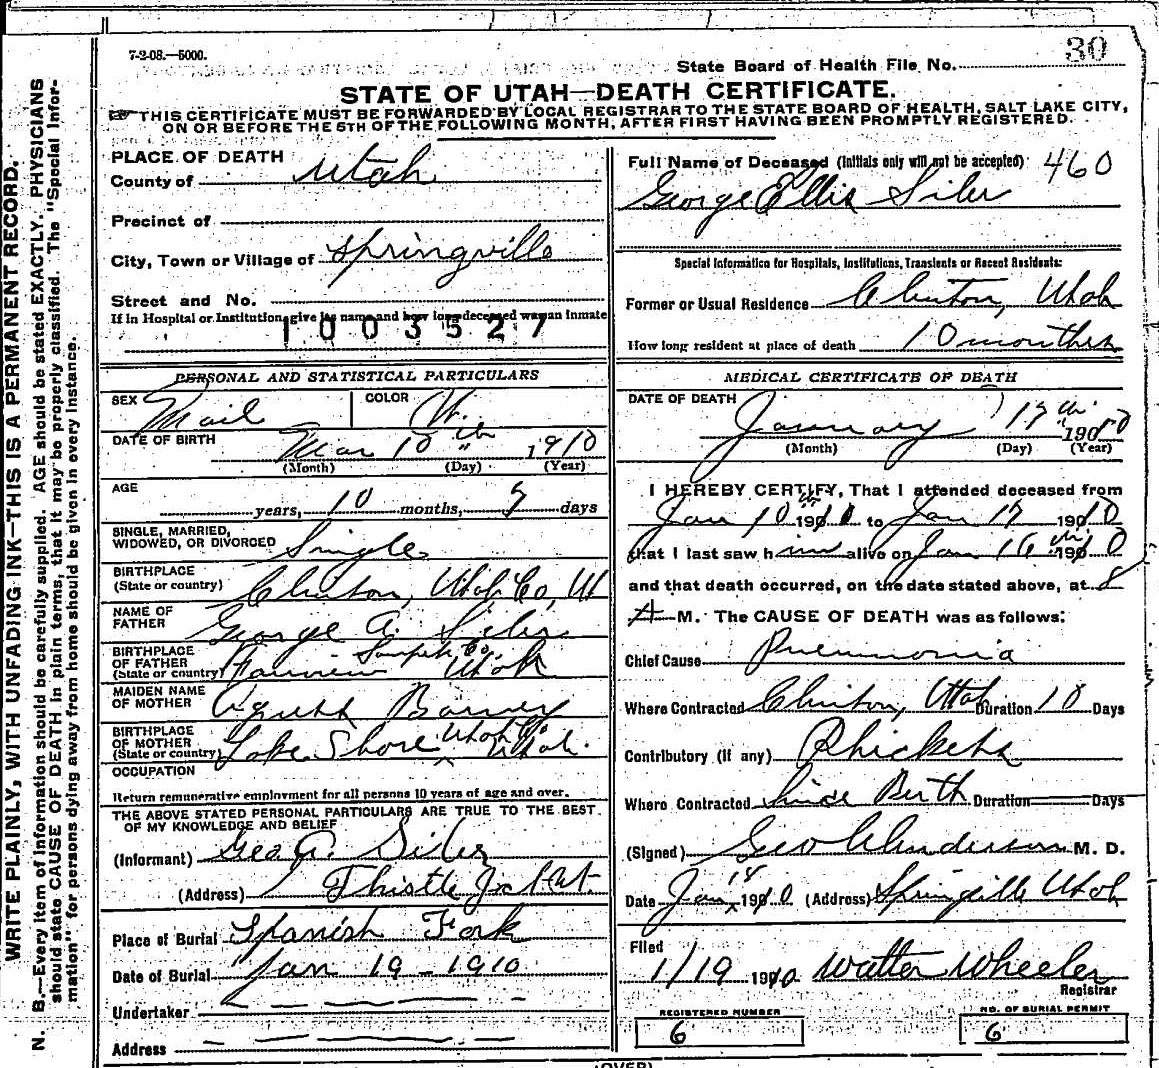 7-2-08.—5000.
State Board of Health File No. 30
STATE OF UTAH—DEATH CERTIFICATE.
THIS CERTIFICATE MUST BE FORWARDED BY LOCAL REGISTRAR TO THE STATE BOARD OF HEALTH, SALT LAKE CITY,
ON OR BEFORE THE 5TH OF THE FOLLOWING MONTH, AFTER FIRST HAVING BEEN PROMPTLY REGISTERED.
WRITE PLAINLY, WITH UNFADING INK—THIS IS A PERMANENT RECORD.
N. B.—Every item of information should be carefully supplied. AGE should be stated EXACTLY. PHYSICIANS
should state CAUSE OF DEATH in plain terms, that it may be properly classified. The "Special Infor-
mation" for persons dying away from home should be given in every instance.
PLACE OF DEATH
County of Utah
Precinct of
City, Town or Village of Springville
Street and No.
If in Hospital or Institution, give its name and how long deceased was an inmate
1003527
PERSONAL AND STATISTICAL PARTICULARS
SEX Mail COLOR W.
DATE OF BIRTH Mar 10th 1910
(Month) (Day) (Year)
AGE
years, 10 months, days
SINGLE, MARRIED,
WIDOWED, OR DIVORCED Single
BIRTHPLACE
(State or country) Clinton, Utah Co, Ut
NAME OF
FATHER George A. Siler
BIRTHPLACE
OF FATHER
(State or country) Fairview Sanpete Co. Utah
MAIDEN NAME
OF MOTHER Barney
BIRTHPLACE
OF MOTHER
(State or country) Lake Shore Utah Co. Utah.
OCCUPATION
Return remunerative employment for all persons 10 years of age and over.
THE ABOVE STATED PERSONAL PARTICULARS ARE TRUE TO THE BEST
OF MY KNOWLEDGE AND BELIEF
(Informant) Geo A. Siler
(Address) Thistle Jct Ut.
Place of Burial Spanish Fork
Date of Burial Jan 19 - 1910
Undertaker
Address
Full Name of Deceased (Initials only will not be accepted) 460
George Ellis Siler
Special Information for Hospitals, Institutions, Transients or Recent Residents:
Former or Usual Residence Clinton, Utah
How long resident at place of death 10 monthes
MEDICAL CERTIFICATE OF DEATH
DATE OF DEATH
January 17th 1910
(Month) (Day) (Year)
I HEREBY CERTIFY, That I attended deceased from
Jan 10th 1910 to Jan 17 1910
that I last saw him alive on Jan 16th 1910
and that death occurred, on the date stated above, at 8
A M. The CAUSE OF DEATH was as follows:
Chief Cause Pneumonia
Where Contracted Clinton, Utah Duration 10 Days
Contributory (if any) Rhickets
Where Contracted Since Birth Duration Days
(Signed) Geo Anderson M. D.
Date Jan 18 1910 (Address) Springville Utah
Filed
1/19 1910 Walter Wheeler
Registrar
REGISTERED NUMBER
6
NO. OF BURIAL PERMIT
6
(OVER)